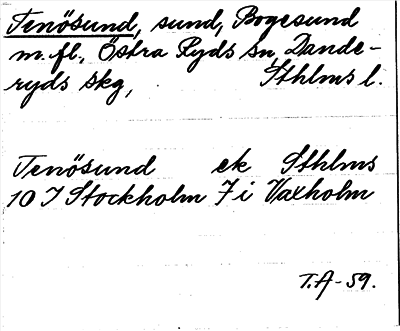 Tenösund, sund, Bogesund
m.fl., Östra Ryds sn, Dande-
ryds skg, Sthlms l.
Tenösund ek Sthlms
10 I Stockholm 7 i Vaxholm
T.A-59.